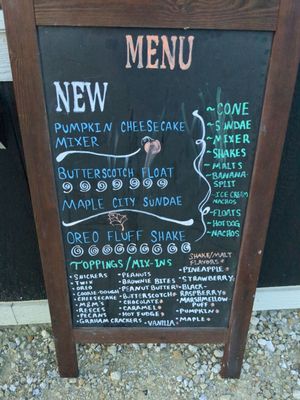 MENU
NEW
PUMPKIN CHEESECAKE
MIXER
BUTTERSCOTCH FLOAT
MAPLE CITY SUNDAE
OREO FLUFF SHAKE
~CONE
~SUNDAE
~MIXER
~SHAKES
~MALTS
~BANANA-
SPLIT
ICE CREAM
NACHOS
~FLOATS
~HOT DOG
~NACHOS
TOPPINGS/MIX-INS
- SNICKERS
- TWIX
- OREO
- COOKIE-DOUGH
- CHEESECAKE
- M&MS
- REECES
- PECANS
- GRAHAM CRACKERS
- PEANUTS
- BROWNIE BITES
- PEANUT BUTTER
- BUTTERSCOTCH
- CHOCOLATE
- CARAMEL
- HOT FUDGE
- VANILLA
SHAKE/MALT
FLAVORS
- PINEAPPLE
- STRAWBERRY
- BLACK-
RASPBERRY
- MARSHMELLOW
PUFF
- PUMPKIN
- MAPLE